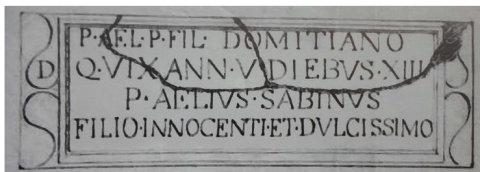 P·AEL·P·FIL· DOMITIANO
D
Q·VIX ANN·V·DIEBVS·XIII
P·AELIVS·SABINVS
FILIO·INNOCENTI·ET·DVLCISSIMO